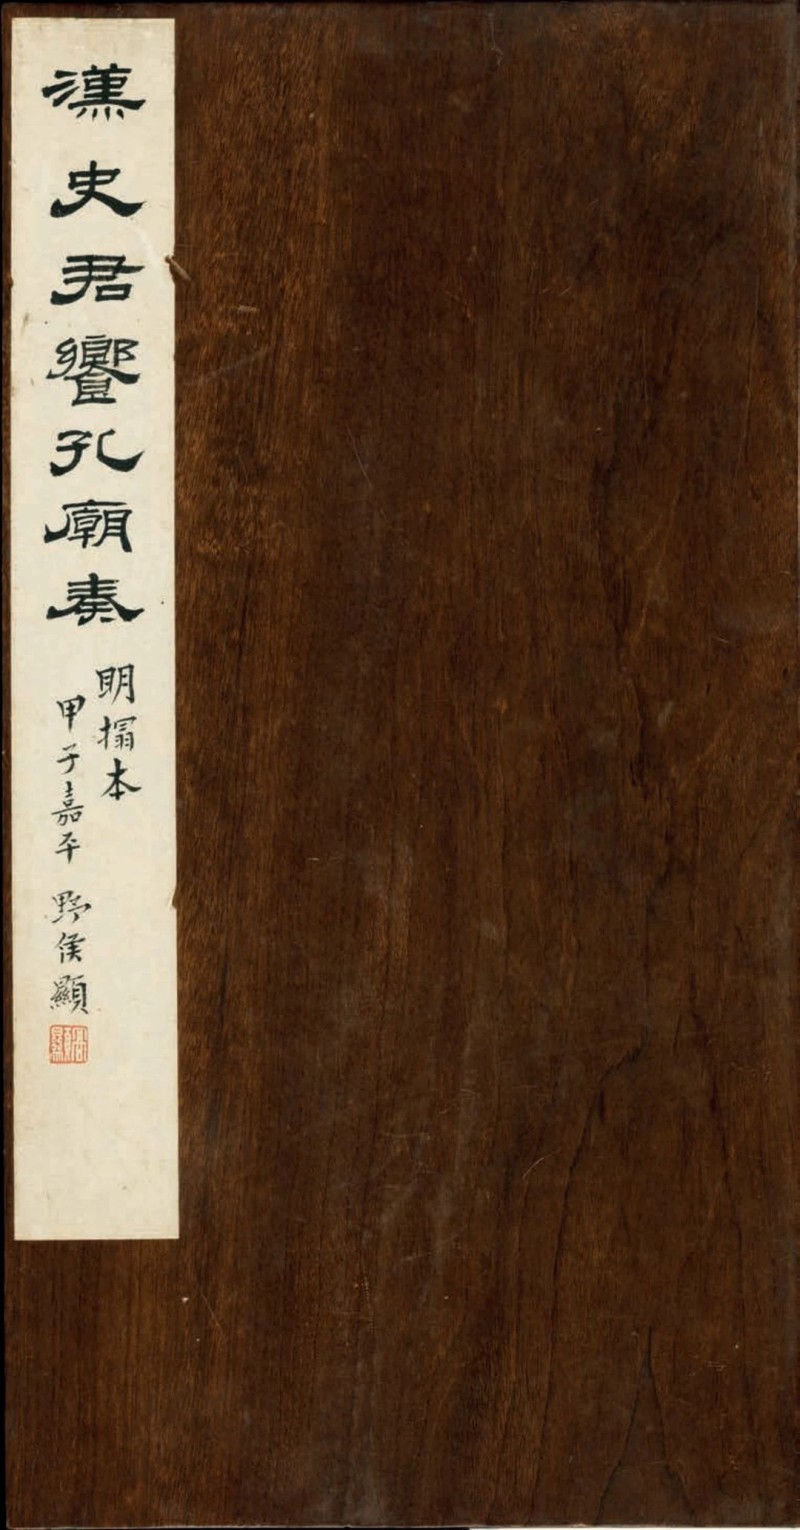 漢史君饗孔廟奏
明搨本
甲子嘉平 野侯顯
高顯